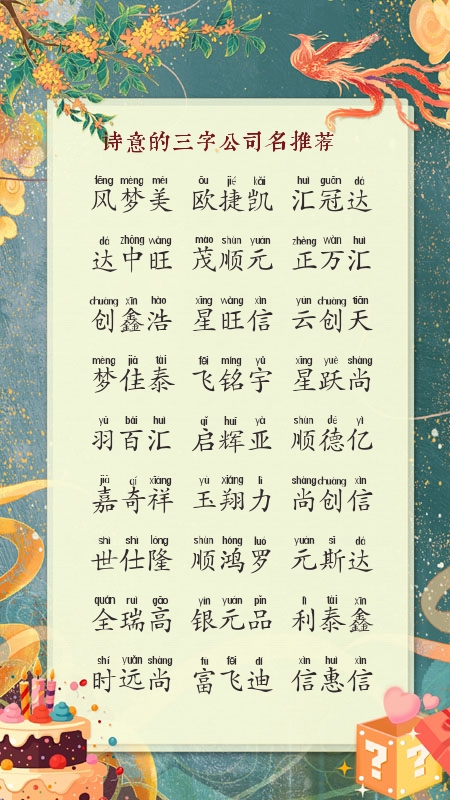 诗意的三字公司名推荐
fēng mèng měi ōu jié kǎi huì guān dá
风梦美 欧捷凯 汇冠达
dá zhōng wàng mào shùn yuán zhèng wàn huì
达中旺 茂顺元 正万汇
chuàng xīn hào xīng wàng xìn yún chuàng tiān
创鑫浩 星旺信 云创天
mèng jiā tài fēi míng yǔ xīng yuè shàng
梦佳泰 飞铭宇 星跃尚
yǔ bǎi huì qǐ huī yà shùn dé yì
羽百汇 启辉亚 顺德亿
jiā qí xiáng yù xiáng lì shàng chuàng xìn
嘉奇祥 玉翔力 尚创信
shì shì lóng shùn hóng luó yuán sī dá
世仕隆 顺鸿罗 元斯达
quán ruì gāo yín yuán pǐn lì tài xīn
全瑞高 银元品 利泰鑫
shí yuǎn shàng fù fēi dí xìn huì xìn
时远尚 富飞迪 信惠信
? ?